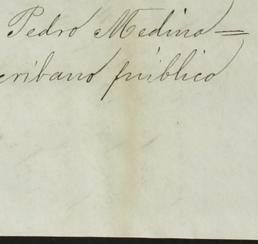 Pedro Medina=
cribano público